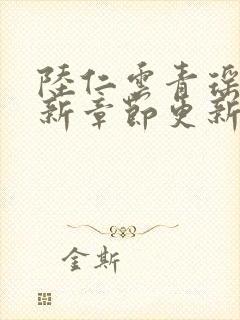 陸仁雲青瑶
新章節更新
金斯